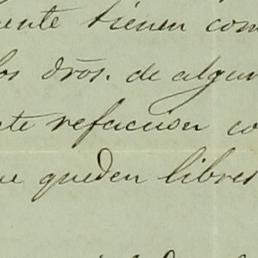 ente tienen com
los dros. de algun
te refaccion co
ue queden libres